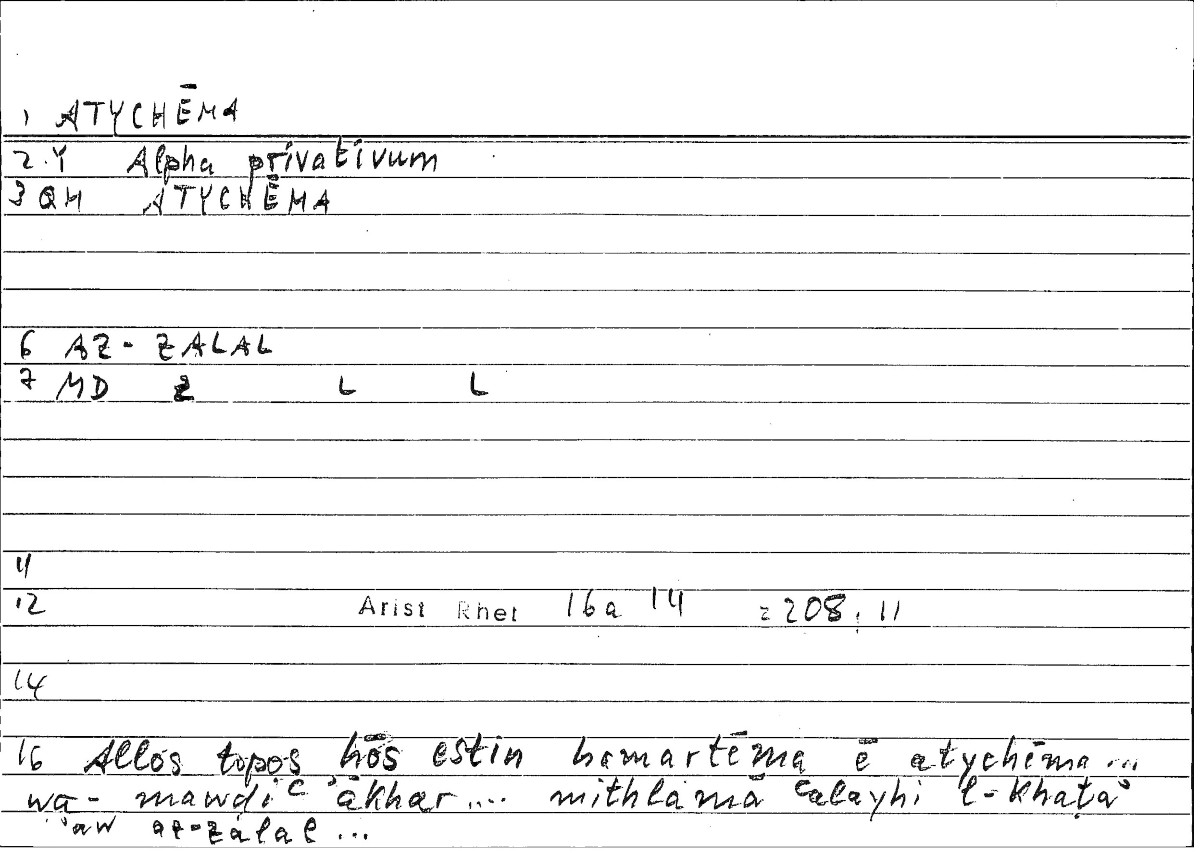 1 ATYCHĒMA
2.Y Alpha privativum
3 QM ATYCHĒMA
6 AZ-ZALAL
7 MD Z L L
11
12 Arist Rhet 16a 14 = 208, 11
14
16 Allos topos hōs estin hamartēma ē atychēma ...
wa- mawḍiʿ ʾākhar ... mithlamā ʿalayhi l-khaṭaʾ
ʾaw az-zalal ...